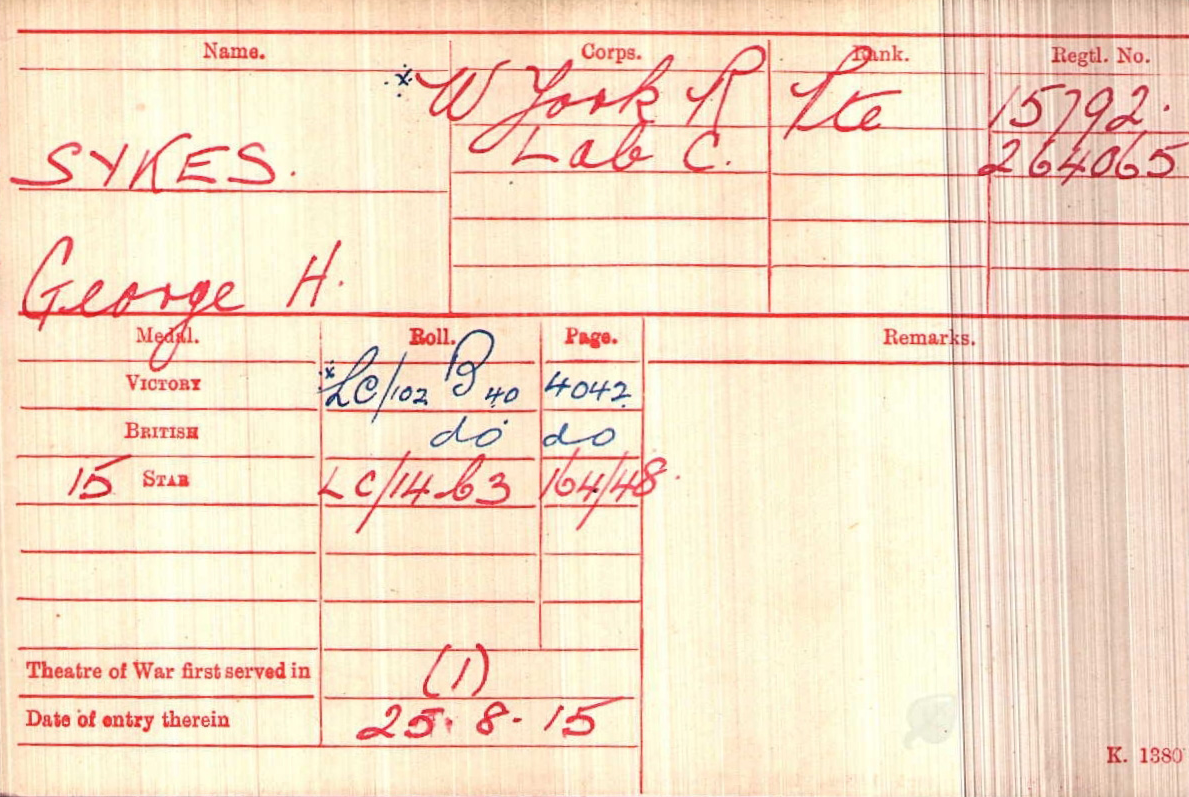 Name. Corps. Rank. Regtl. No.
x W York R Pte 15792.
SYKES. Lab C. 264065
George H.
Medal. Roll. Page. Remarks.
VICTORY x LC/102 B 40 4042
BRITISH do do
15 STAR LC/14 b3 164/48.
Theatre of War first served in (1)
Date of entry therein 25. 8. 15
K. 1380